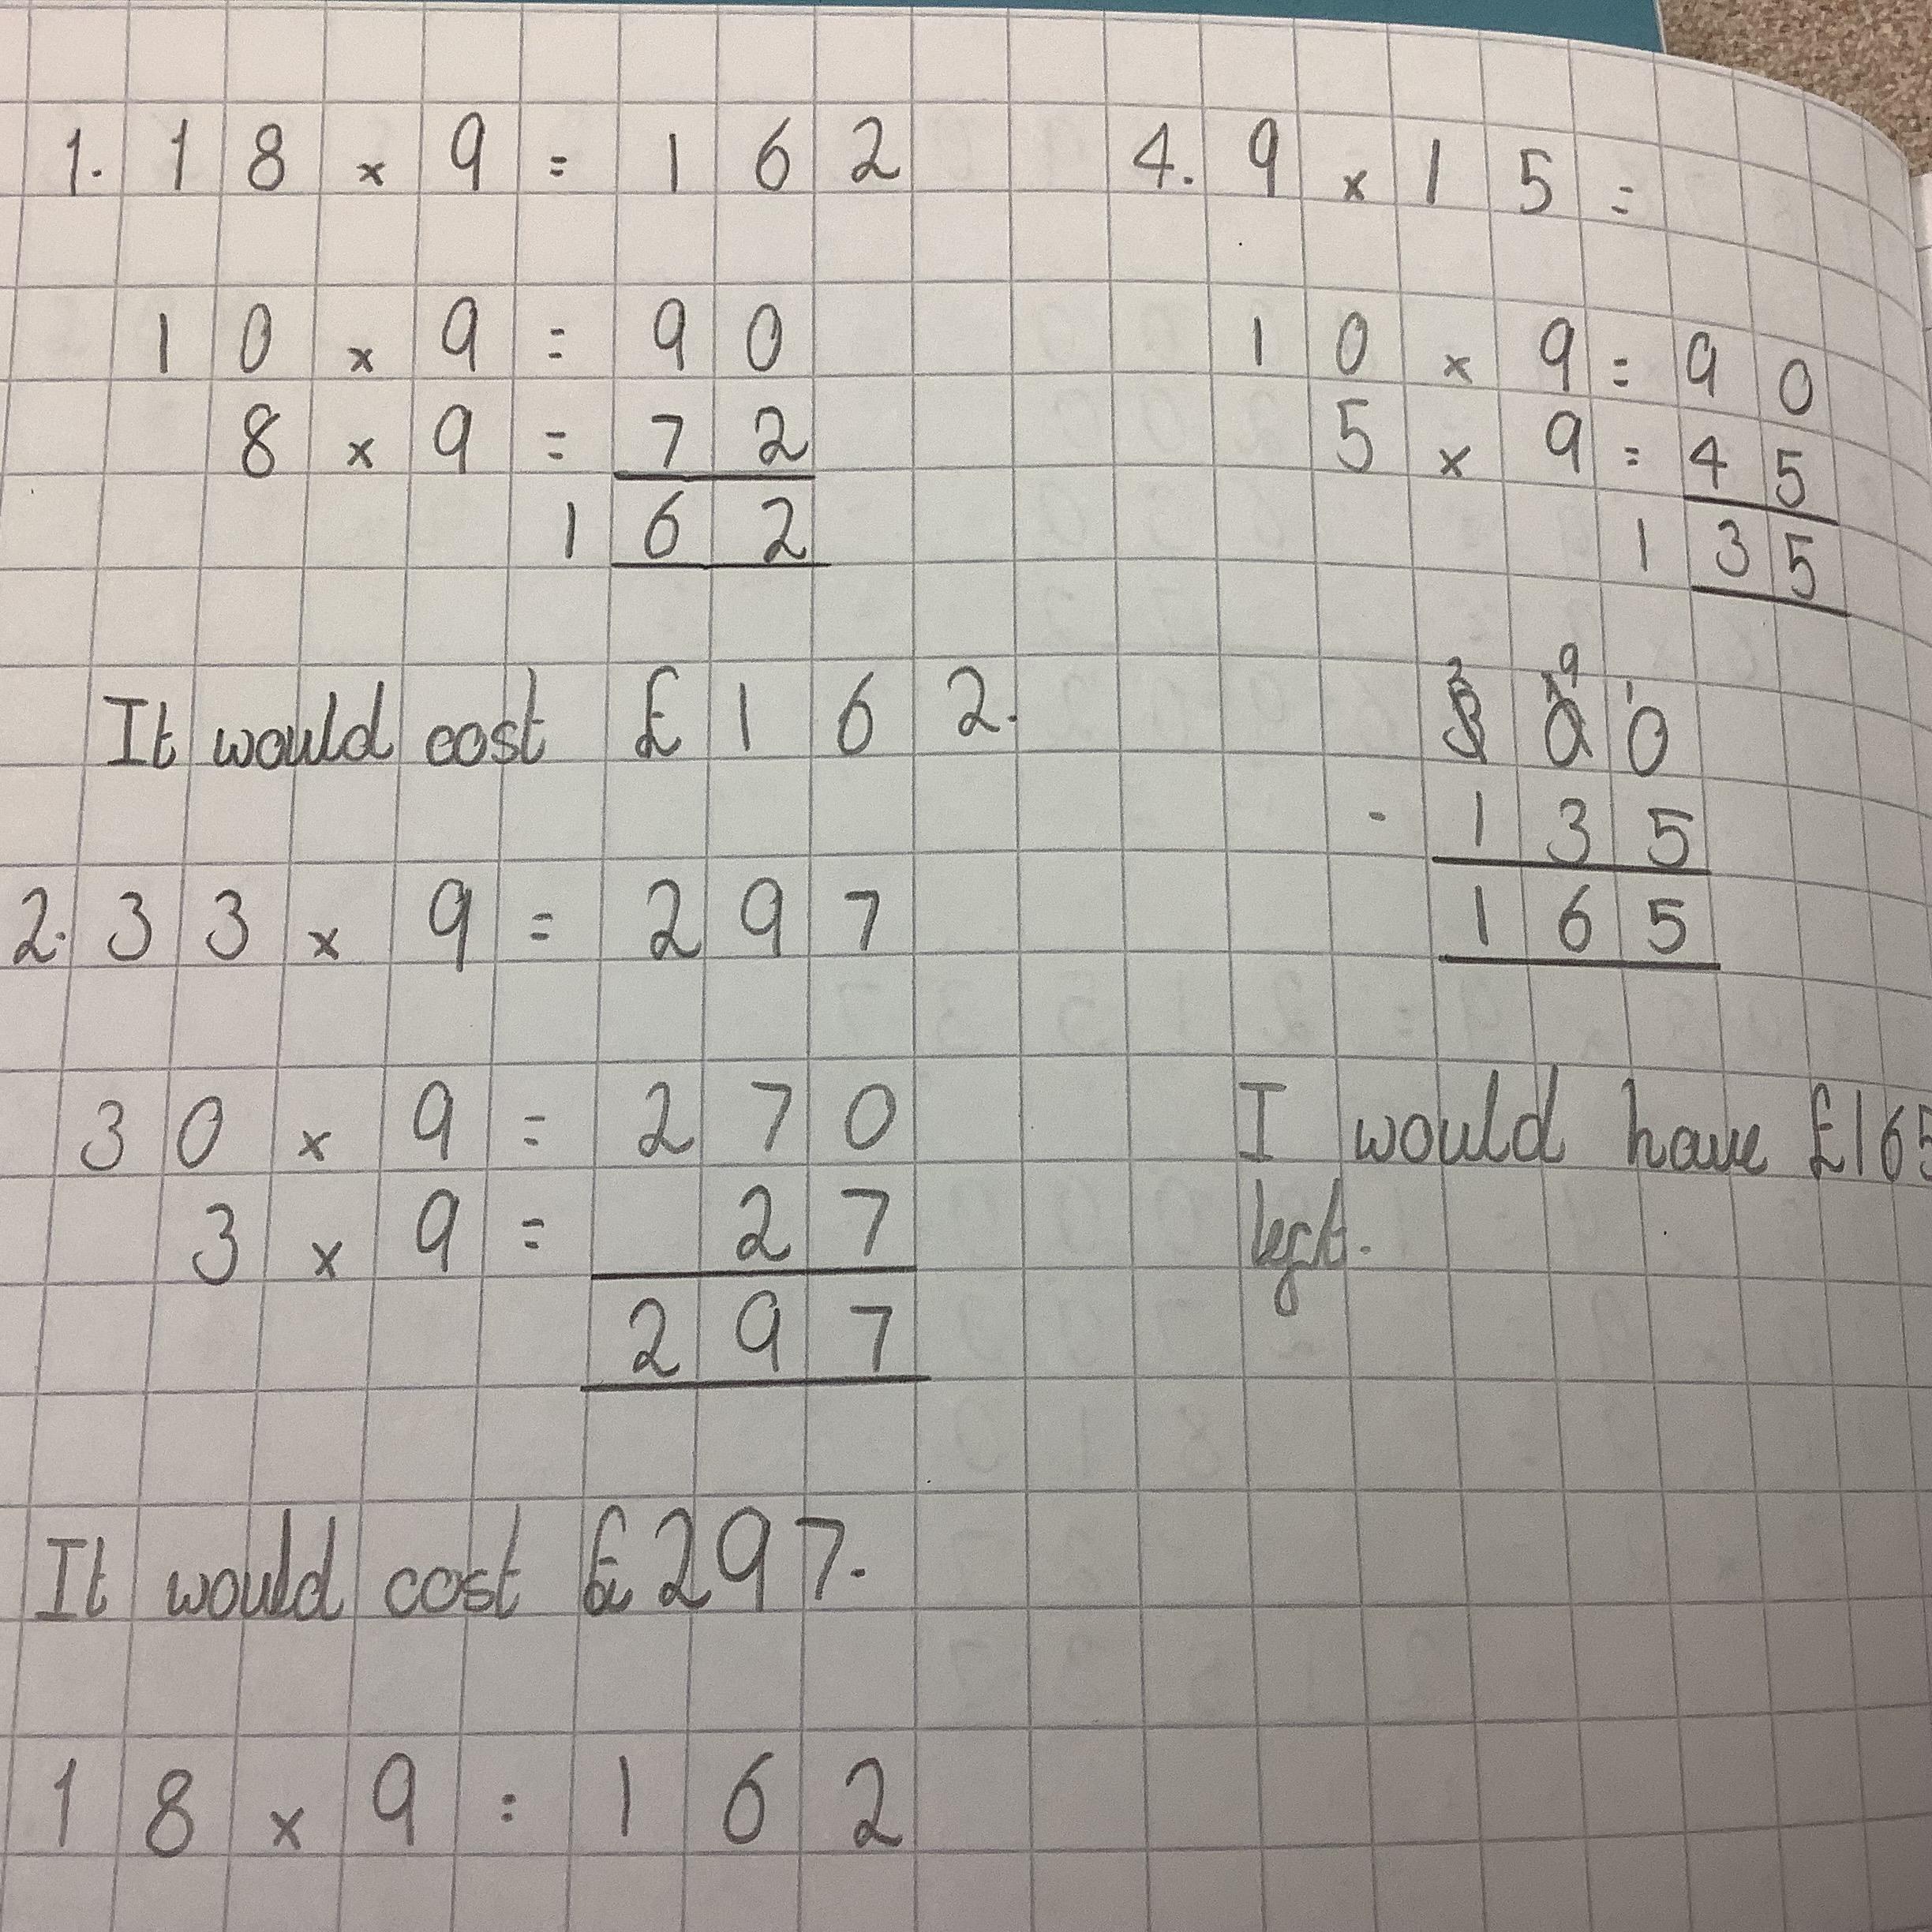 1. 18 × 9 = 162
10 × 9 = 90
8 × 9 = 72
162
It would cost £162.
2. 33 × 9 = 297
30 × 9 = 270
3 × 9 = 27
297
It would cost £297.
18 × 9 = 162
4. 9 × 15 =
10 × 9 = 90
5 × 9 = 45
135
2 9 1
300
- 135
165
I would have £165
left.